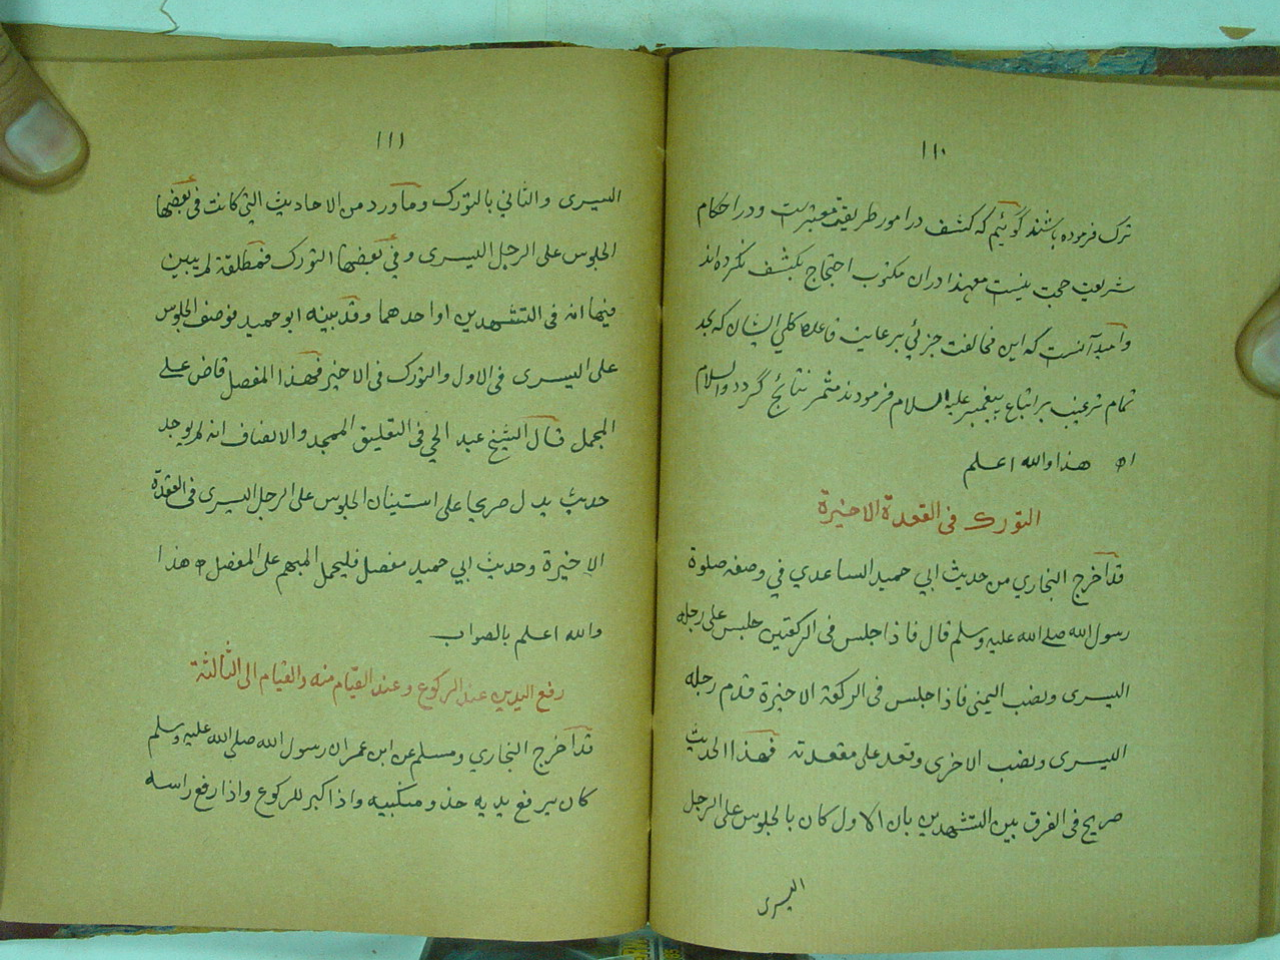 ١١٠
ترک فرموده باشند گوئیم که کشف در امور طریقت معتبر است و در احکام
شریعت حجت نیست معهذا دران مکتوب احتجاج بکشف نکرده اند
و امید آنست که این مخالفت جزئي برعایت قاعدهٔ کلي ایشان که بجد
تمام ترغیب بر اتباع پیغمبر علیه السلام فرمودند مثمر نتائج گردد والسلام
اه هذا والله اعلم
التورك فى القعدة الاخيرة
قد أخرج البخاري من حديث ابي حميد الساعدي في وصفه صلوة
رسول الله صلى الله عليه وسلم قال فاذا جلس فى الركعتين جلس على رجله
اليسرى ونصب اليمنى فاذا جلس فى الركعة الاخيرة قدم رجله
اليسرى ونصب الاخرى وقعد على مقعدته فهذا الحديث
صريح فى الفرق بين التشهدين بان الاول كان بالجلوس على الرجل
اليسرى
١١١
اليسرى والثاني بالتورك وما ورد من الاحاديث التي كانت فى بعضها
الجلوس على الرجل اليسرى وفي بعضها التورك فمطلقة لم يبين
فيها انه فى التشهدين او احدهما وقد بينه ابو حميد فوصف الجلوس
على اليسرى فى الاول والتورك فى الاخير فهذا المفصل قاض على
المجمل قال الشيخ عبد الحي فى التعليق الممجد والانصاف انه لم يوجد
حديث يدل صريحا على استينان الجلوس على الرجل اليسرى فى القعدة
الاخيرة وحديث ابي حميد مفصل فليحمل المبهم على المفصل اه هذا
والله اعلم بالصواب
رفع اليدين عند الركوع وعند القيام منه والقيام الى الثالثة
قد أخرج البخاري ومسلم عن ابن عمر ان رسول الله صلى الله عليه وسلم
كان يرفع يديه حذو منكبيه واذا كبر للركوع واذا رفع راسه